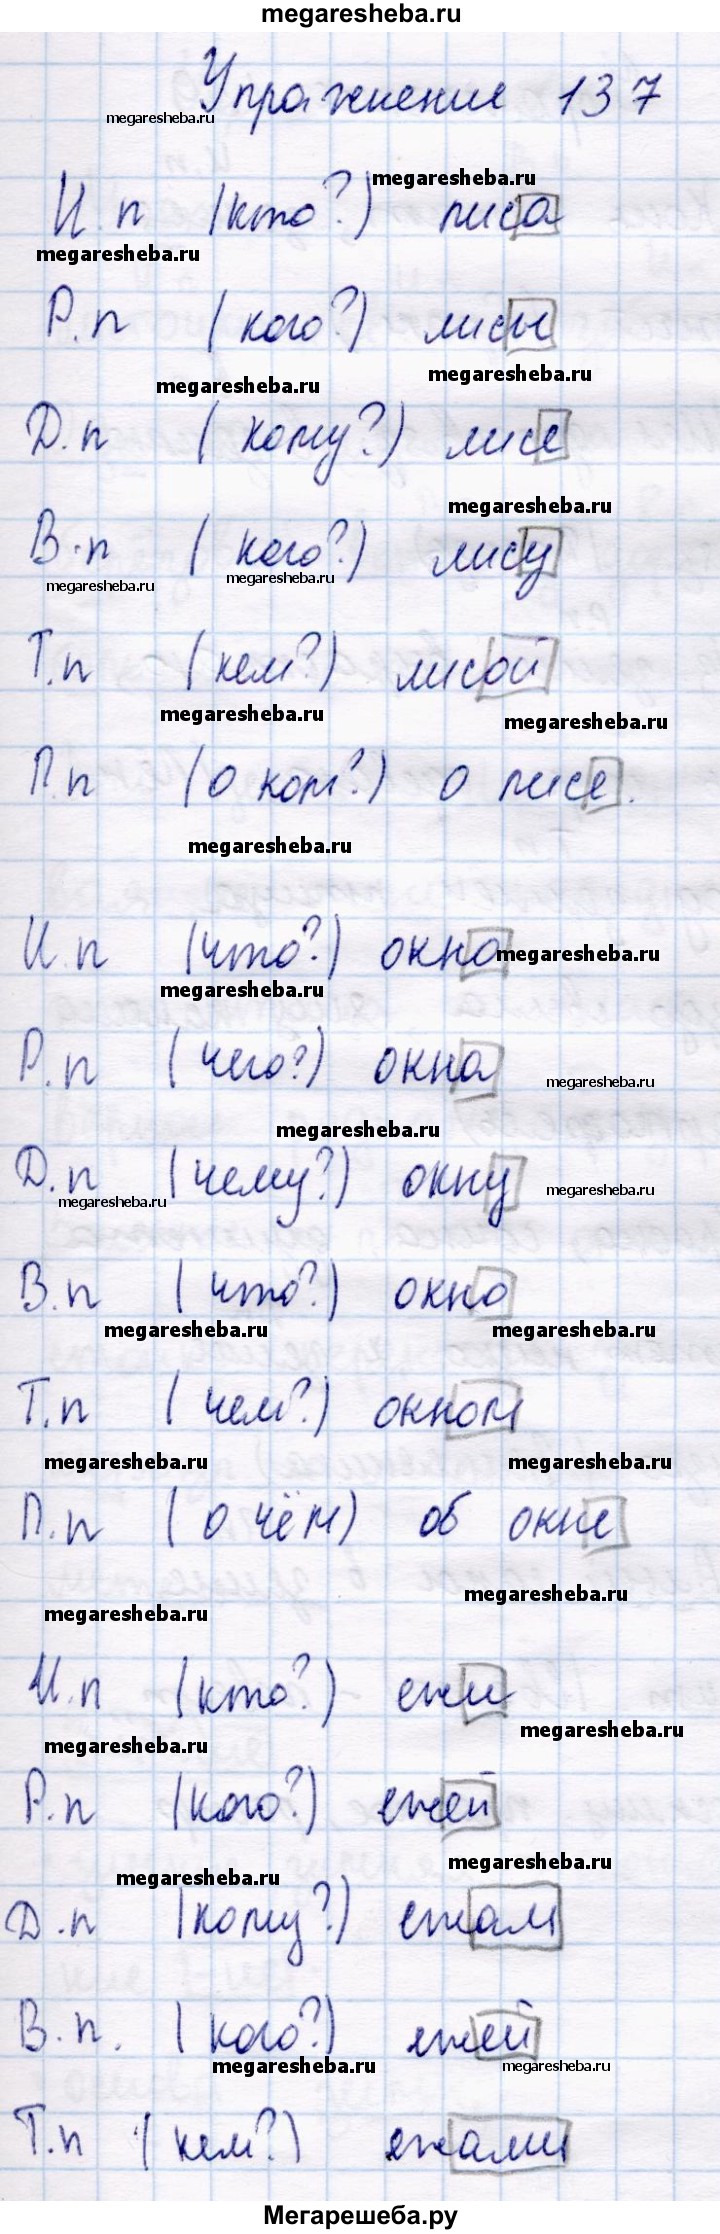 megaresheba.ru
Упражнение 137
megaresheba.ru
megaresheba.ru
И.п (кто?) лиса
megaresheba.ru
Р.п (кого?) лисы
megaresheba.ru megaresheba.ru
Д.п (кому?) лисе
megaresheba.ru
В.п (кого?) лису
megaresheba.ru megaresheba.ru
Т.п (кем?) лисой
megaresheba.ru megaresheba.ru
П.п (о ком?) о лисе.
megaresheba.ru
И.п (что?) окно megaresheba.ru
megaresheba.ru
Р.п (чего?) окна megaresheba.ru
megaresheba.ru
Д.п (чему?) окну megaresheba.ru
megaresheba.ru
В.п (что?) окно
megaresheba.ru megaresheba.ru
Т.п (чем?) окном
megaresheba.ru megaresheba.ru
П.п (о чём) об окне
megaresheba.ru
megaresheba.ru
И.п (кто?) ежи
megaresheba.ru megaresheba.ru
Р.п (кого?) ежей
megaresheba.ru megaresheba.ru
Д.п (кому?) ежам
В.п. (кого?) ежей
megaresheba.ru megaresheba.ru
Т.п (кем?) ежами
Мегарешеба.ру